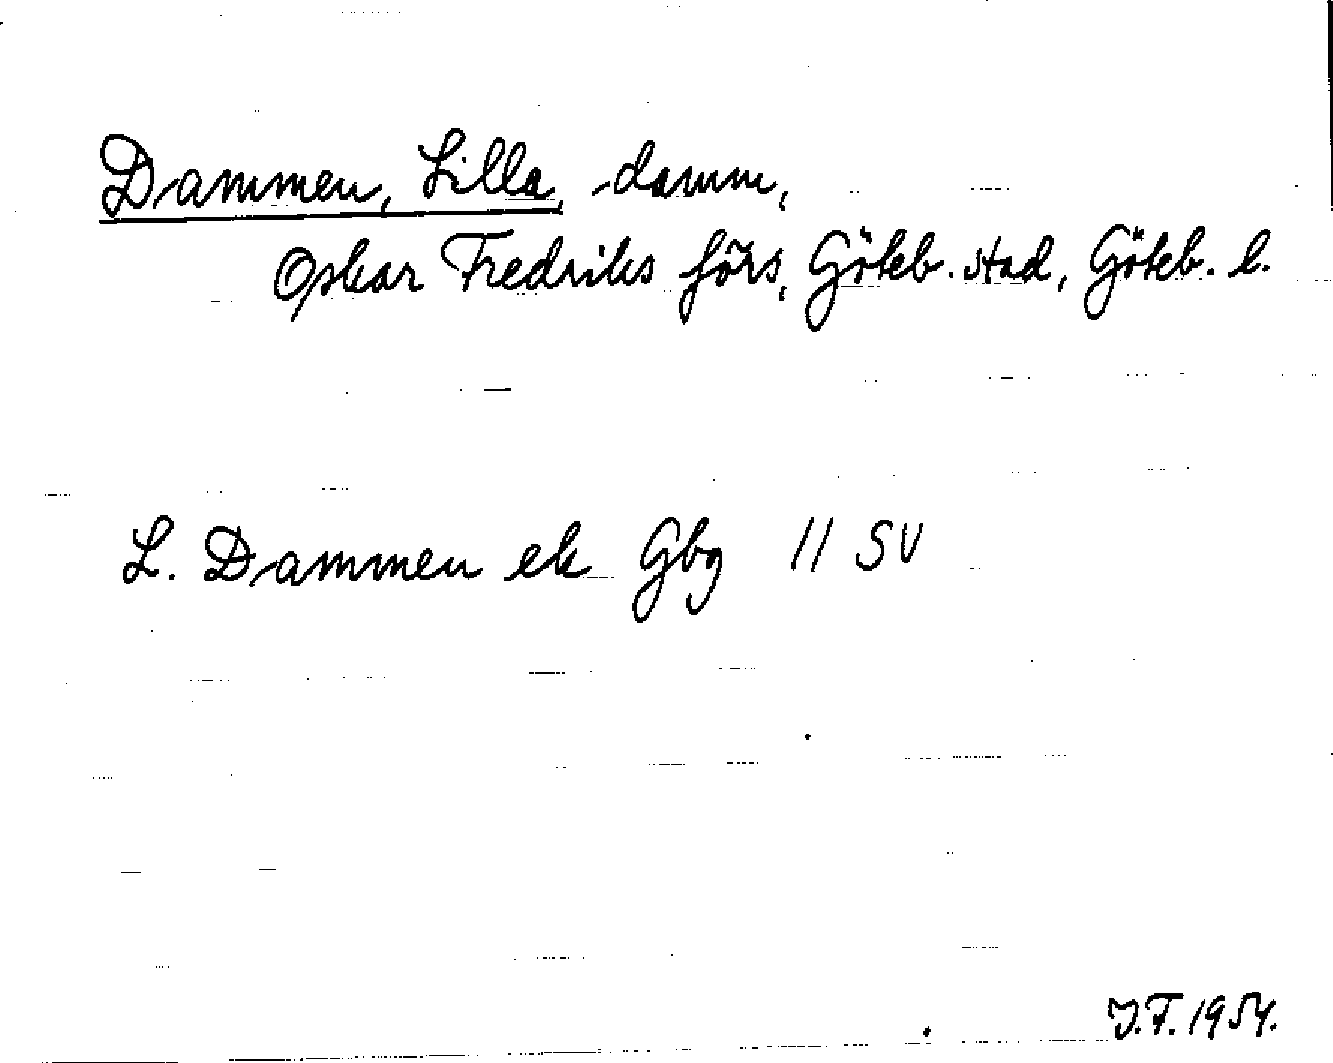 Dammen, Lilla, damm,
Oskar Fredriks förs, Göteb. stad, Göteb. l.
L. Dammen ek Gbg 11 SV
J.F. 1954.